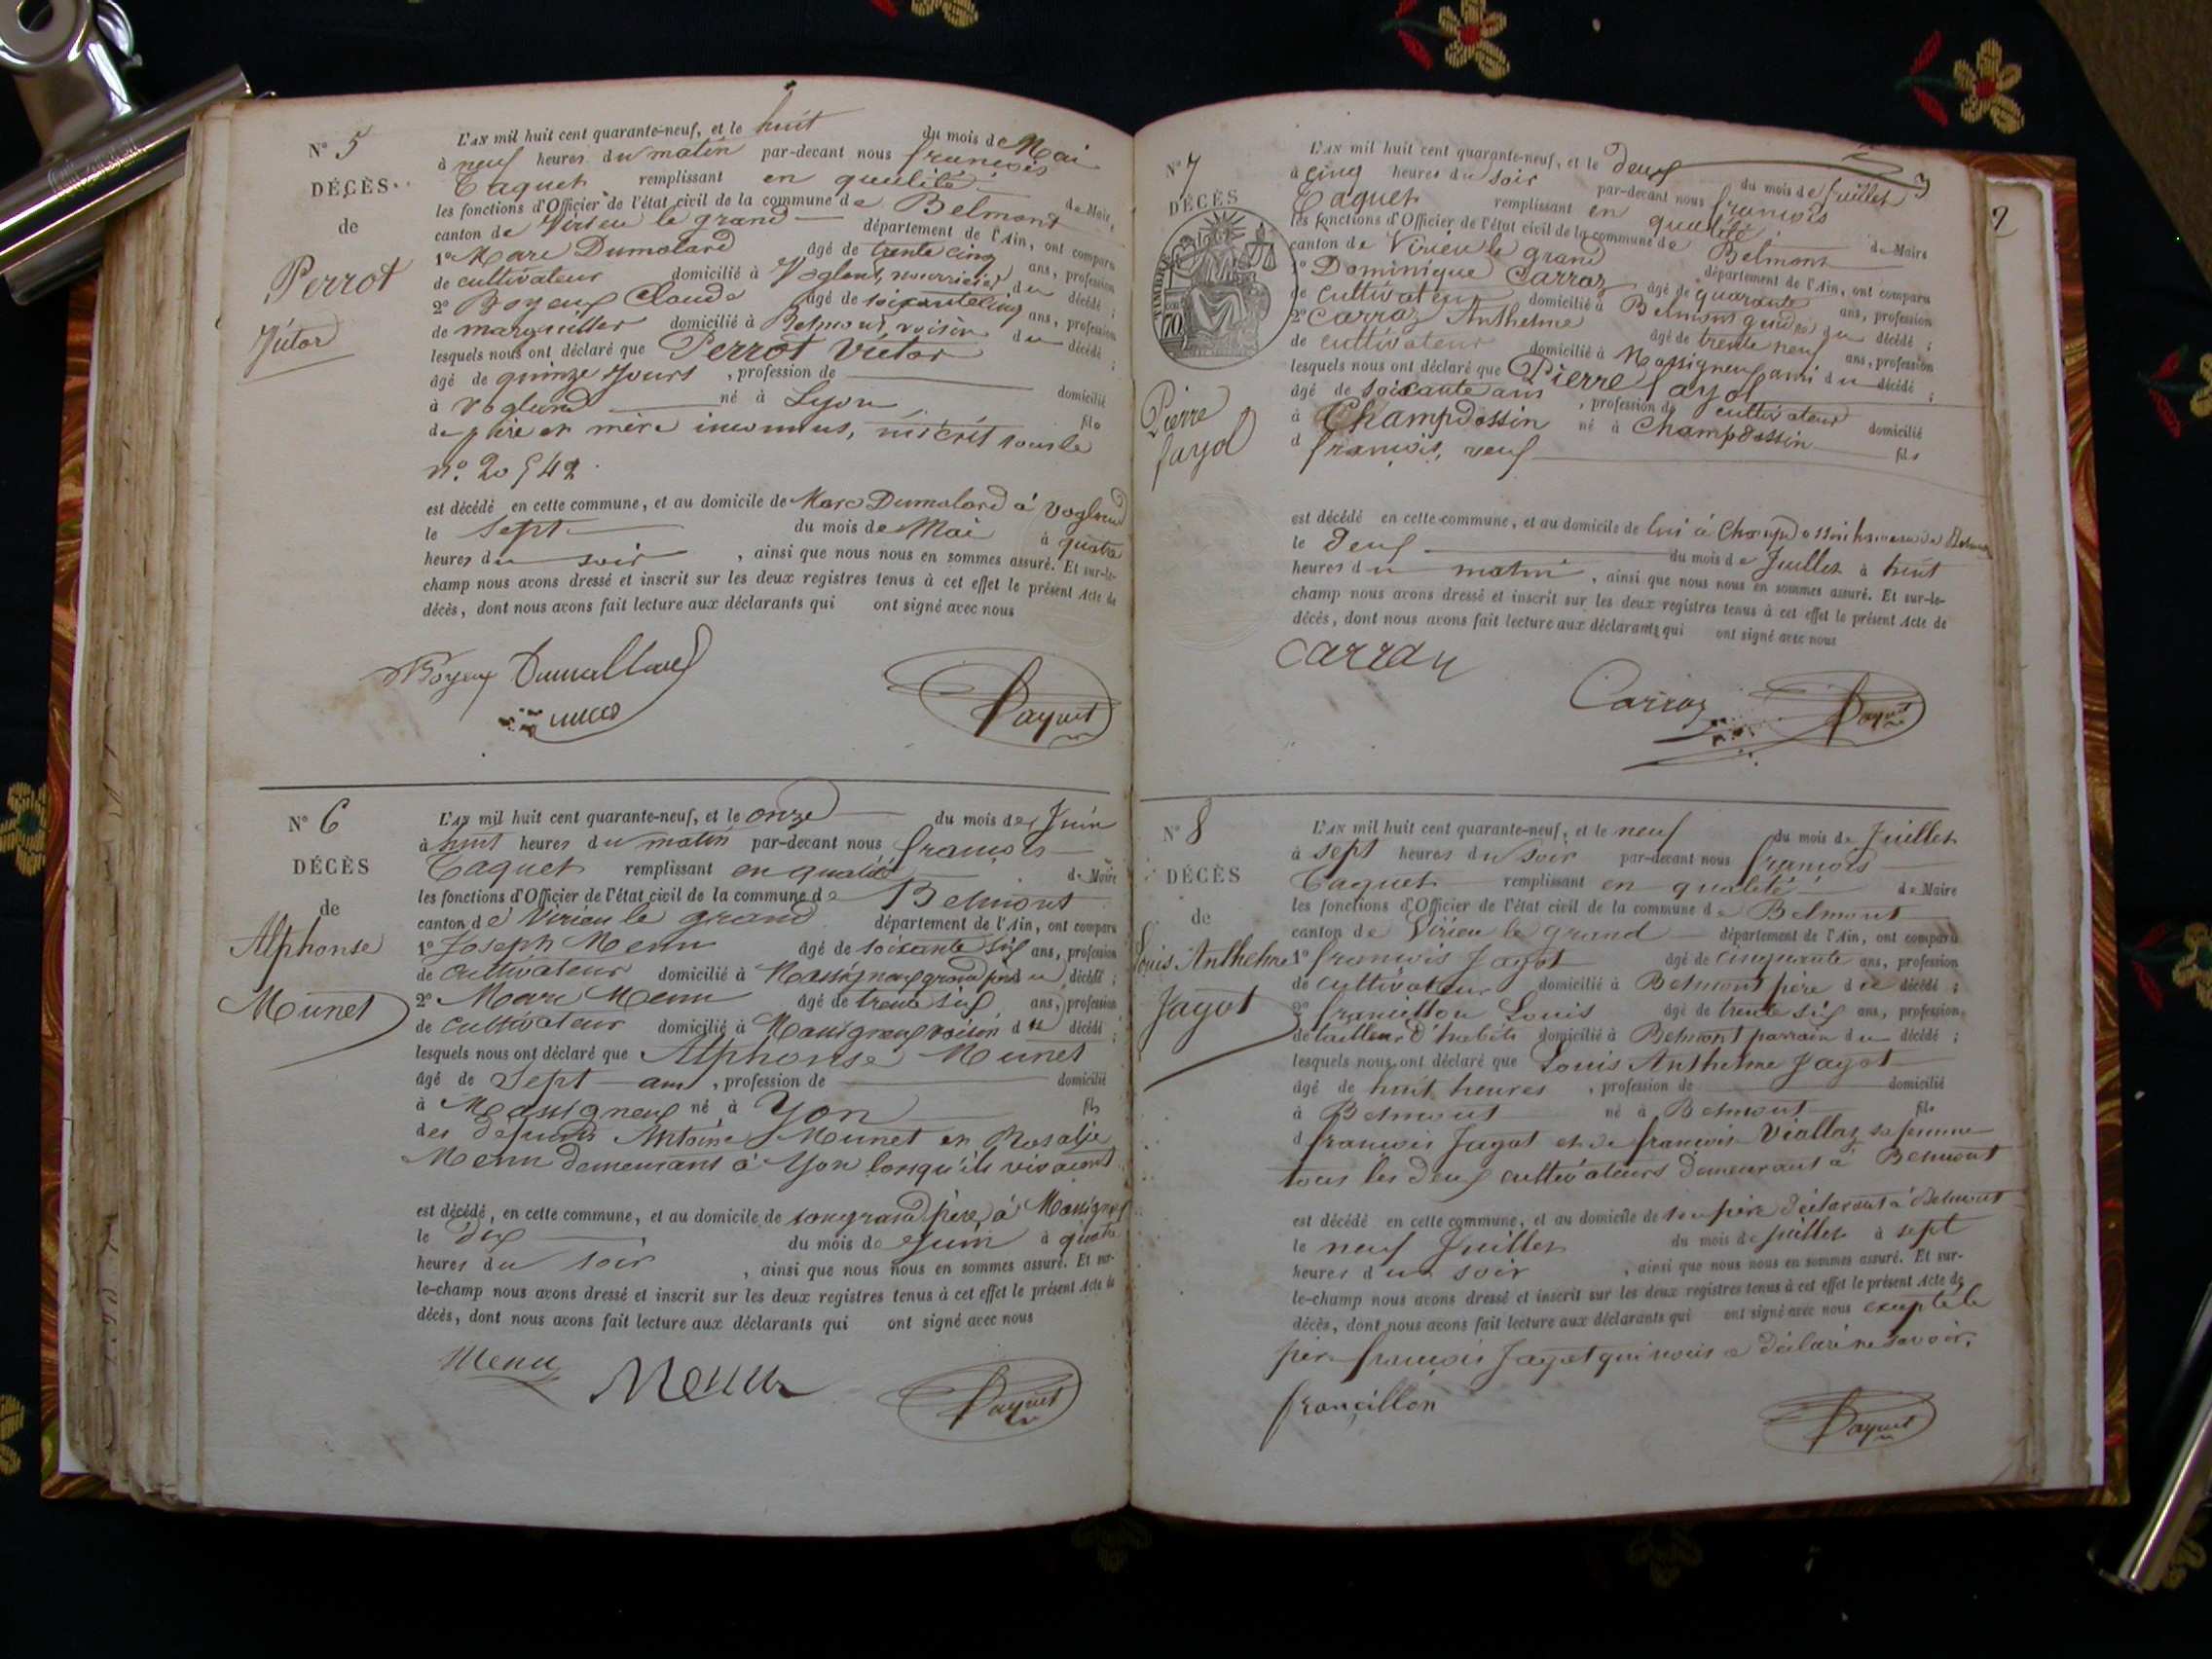 N° 5
DÉCÈS
de
Perrot
Victor
L'AN mil huit cent quarante-neuf, et le huit du mois de Mai
à neuf heures du matin par-devant nous françois
Taquet remplissant en qualité de Maire,
les fonctions d'Officier de l'état civil de la commune de Belmont
canton de Virieu le grand département de l'Ain, ont comparu
1° Marc Dumolard âgé de trente cinq ans, profession
de cultivateur domicilié à Voglend, nourricier du décédé ;
2° Boyeux Claude âgé de soixante cinq ans, profession
de marguiller domicilié à Belmont, voisin du décédé ;
lesquels nous ont déclaré que Perrot Victor
âgé de quinze jours , profession de domicilié
à Voglend né à Lyon fils
de père et mère inconnus, inscrit sous le
n°. 20542
est décédé en cette commune, et au domicile de Marc Dumolard à Voglend
le sept du mois de Mai à quatre
heures du soir , ainsi que nous nous en sommes assuré. Et sur-le-
champ nous avons dressé et inscrit sur les deux registres tenus à cet effet le présent Acte de
décès, dont nous avons fait lecture aux déclarants qui ont signé avec nous
Boyeux Dumollard
Taquet
N° 6
DÉCÈS
de
Alphonse
Munet
L'AN mil huit cent quarante-neuf, et le onze du mois de Juin
à huit heures du matin par-devant nous françois
Taquet remplissant en qualité de Maire
les fonctions d'Officier de l'état civil de la commune de Belmont
canton de Virieu le grand département de l'Ain, ont comparu
1° Joseph Menu âgé de soixante six ans, profession
de cultivateur domicilié à Massigneux grand père du décédé ;
2° Marc Menu âgé de trente six ans, profession
de cultivateur domicilié à Massigneux voisin du décédé ;
lesquels nous ont déclaré que Alphonse Munet
âgé de Sept ans , profession de domicilié
à Massigneux né à Yon fils
des défunts Antoine Munet et Rosalie
Menu demeurant à Yon lorsqu'ils vivaient
est décédé, en cette commune, et au domicile de son grand père, à Massigneux
le dix du mois de Juin à quatre
heures du soir , ainsi que nous nous en sommes assuré. Et sur-
le-champ nous avons dressé et inscrit sur les deux registres tenus à cet effet le présent Acte de
décès, dont nous avons fait lecture aux déclarants qui ont signé avec nous
Menu Menu Taquet
2
N° 7
DÉCÈS
TIMBRE
70
Pierre
fayol
L'AN mil huit cent quarante-neuf, et le deux du mois de Juillet
à cinq heures du soir par-devant nous françois
Taquet remplissant en qualité de Maire
les fonctions d'Officier de l'état civil de la commune de Belmont
canton de Virieu le grand département de l'Ain, ont comparu
1° Dominique Carraz âgé de quarante ans, profession
de cultivateur domicilié à Belmont gendre du décédé ;
2° Carraz Anthelme âgé de trente neuf ans, profession
de cultivateur domicilié à Massigneux ami du décédé ;
lesquels nous ont déclaré que Pierre fayol
âgé de soixante ans , profession de cultivateur domicilié
à Champdossin né à Champdossin fils
d françois, veuf
est décédé en cette commune, et au domicile de lui à Champdossin hameau de Belmont
le deux du mois de Juillet à huit
heures du matin , ainsi que nous nous en sommes assuré. Et sur-le-
champ nous avons dressé et inscrit sur les deux registres tenus à cet effet le présent Acte de
décès, dont nous avons fait lecture aux déclarants qui ont signé avec nous
Carraz
Carraz Taquet
N° 8
DÉCÈS
de
Louis Anthelme
Jagot
L'AN mil huit cent quarante-neuf, et le neuf du mois de Juillet
à sept heures du soir par-devant nous françois
Taquet remplissant en qualité de Maire
les fonctions d'Officier de l'état civil de la commune de Belmont
canton de Virieu le grand département de l'Ain, ont comparu
1° françois Jagot âgé de cinquante ans, profession
de cultivateur domicilié à Belmont père du décédé ;
2° francillon Louis âgé de trente six ans, profession
de tailleur d'habits domicilié à Belmont parrain du décédé ;
lesquels nous ont déclaré que Louis Anthelme Jagot
âgé de huit heures , profession de domicilié
à Belmont né à Belmont fils
d françois Jagot et de françoise Viallaz sa femme
tous les deux cultivateurs demeurant à Belmont
est décédé en cette commune, et au domicile de son père déclarant à Belmont
le neuf Juillet du mois de Juillet à sept
heures du soir , ainsi que nous nous en sommes assuré. Et sur-
le-champ nous avons dressé et inscrit sur les deux registres tenus à cet effet le présent Acte de
décès, dont nous avons fait lecture aux déclarants qui ont signé avec nous excepté le
père françois Jagot qui nous a déclaré ne savoir.
françillon
Taquet